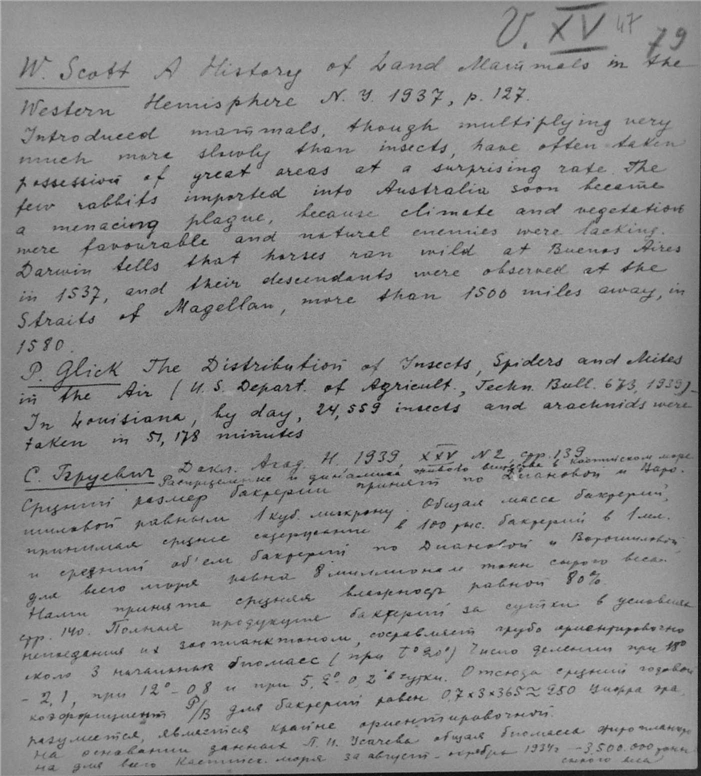 V. XV 47 79
W. Scott A History of Land Mammals in the
Western Hemisphere N. Y. 1937, p. 127.
Introduced mammals, though multiplying very
much more slowly than insects, have often taken
possession of great areas at a surprising rate. The
few rabbits imported into Australia soon became
a menacing plague, because climate and vegetation
were favourable and natural enemies were lacking.
Darwin tells that horses ran wild at Buenos Aires
in 1537, and their descendants were observed at the
Straits of Magellan, more than 1500 miles away, in
1580.
P. Glick The Distribution of Insects, Spiders and Mites
in the Air (U.S. Depart. of Agricult., Techn. Bull. 673, 1939)-
In Louisiana, by day, 24,559 insects and arachnids were
taken in 51,178 minutes
С. Бруевич Докл. Акад. Н. 1939, XXV N2, стр. 139
Распределение и динамика живого вещества в Каспийском море
Средний размер бактерии принят по Диановой и Воро-
шиловой равным 1 куб. микрону. Общая масса бактерий,
принимая среднее содержание в 100 тыс. бактерий в 1 мл.
и средний об'ем бактерий по Диановой и Ворошиловой
для всего моря равна 8 миллионам тонн сырого веса.
Нами принята средняя влажность равной 80%.
стр. 140. Полная продукция бактерий за сутки в условиях
непоедания их зоопланктоном, составляет грубо ориентировочно
около 3 начальных биомасс (при t° 20°) Число делений при 18°
- 2,1, при 12° - 0,8 и при 5,2° 0,2 в сутки. Отсюда средний годовой
коэффициент P/B для бактерий равен 0,7x3x365 ≈ 250 Цифра эта,
разумеется, является крайне ориентировочной.
На основании данных П. И. Усачева общая биомасса фитопланкто
на для всего Каспийск. моря за август - октябрь 1934 г - 3.500.000 тонн
сырого веса